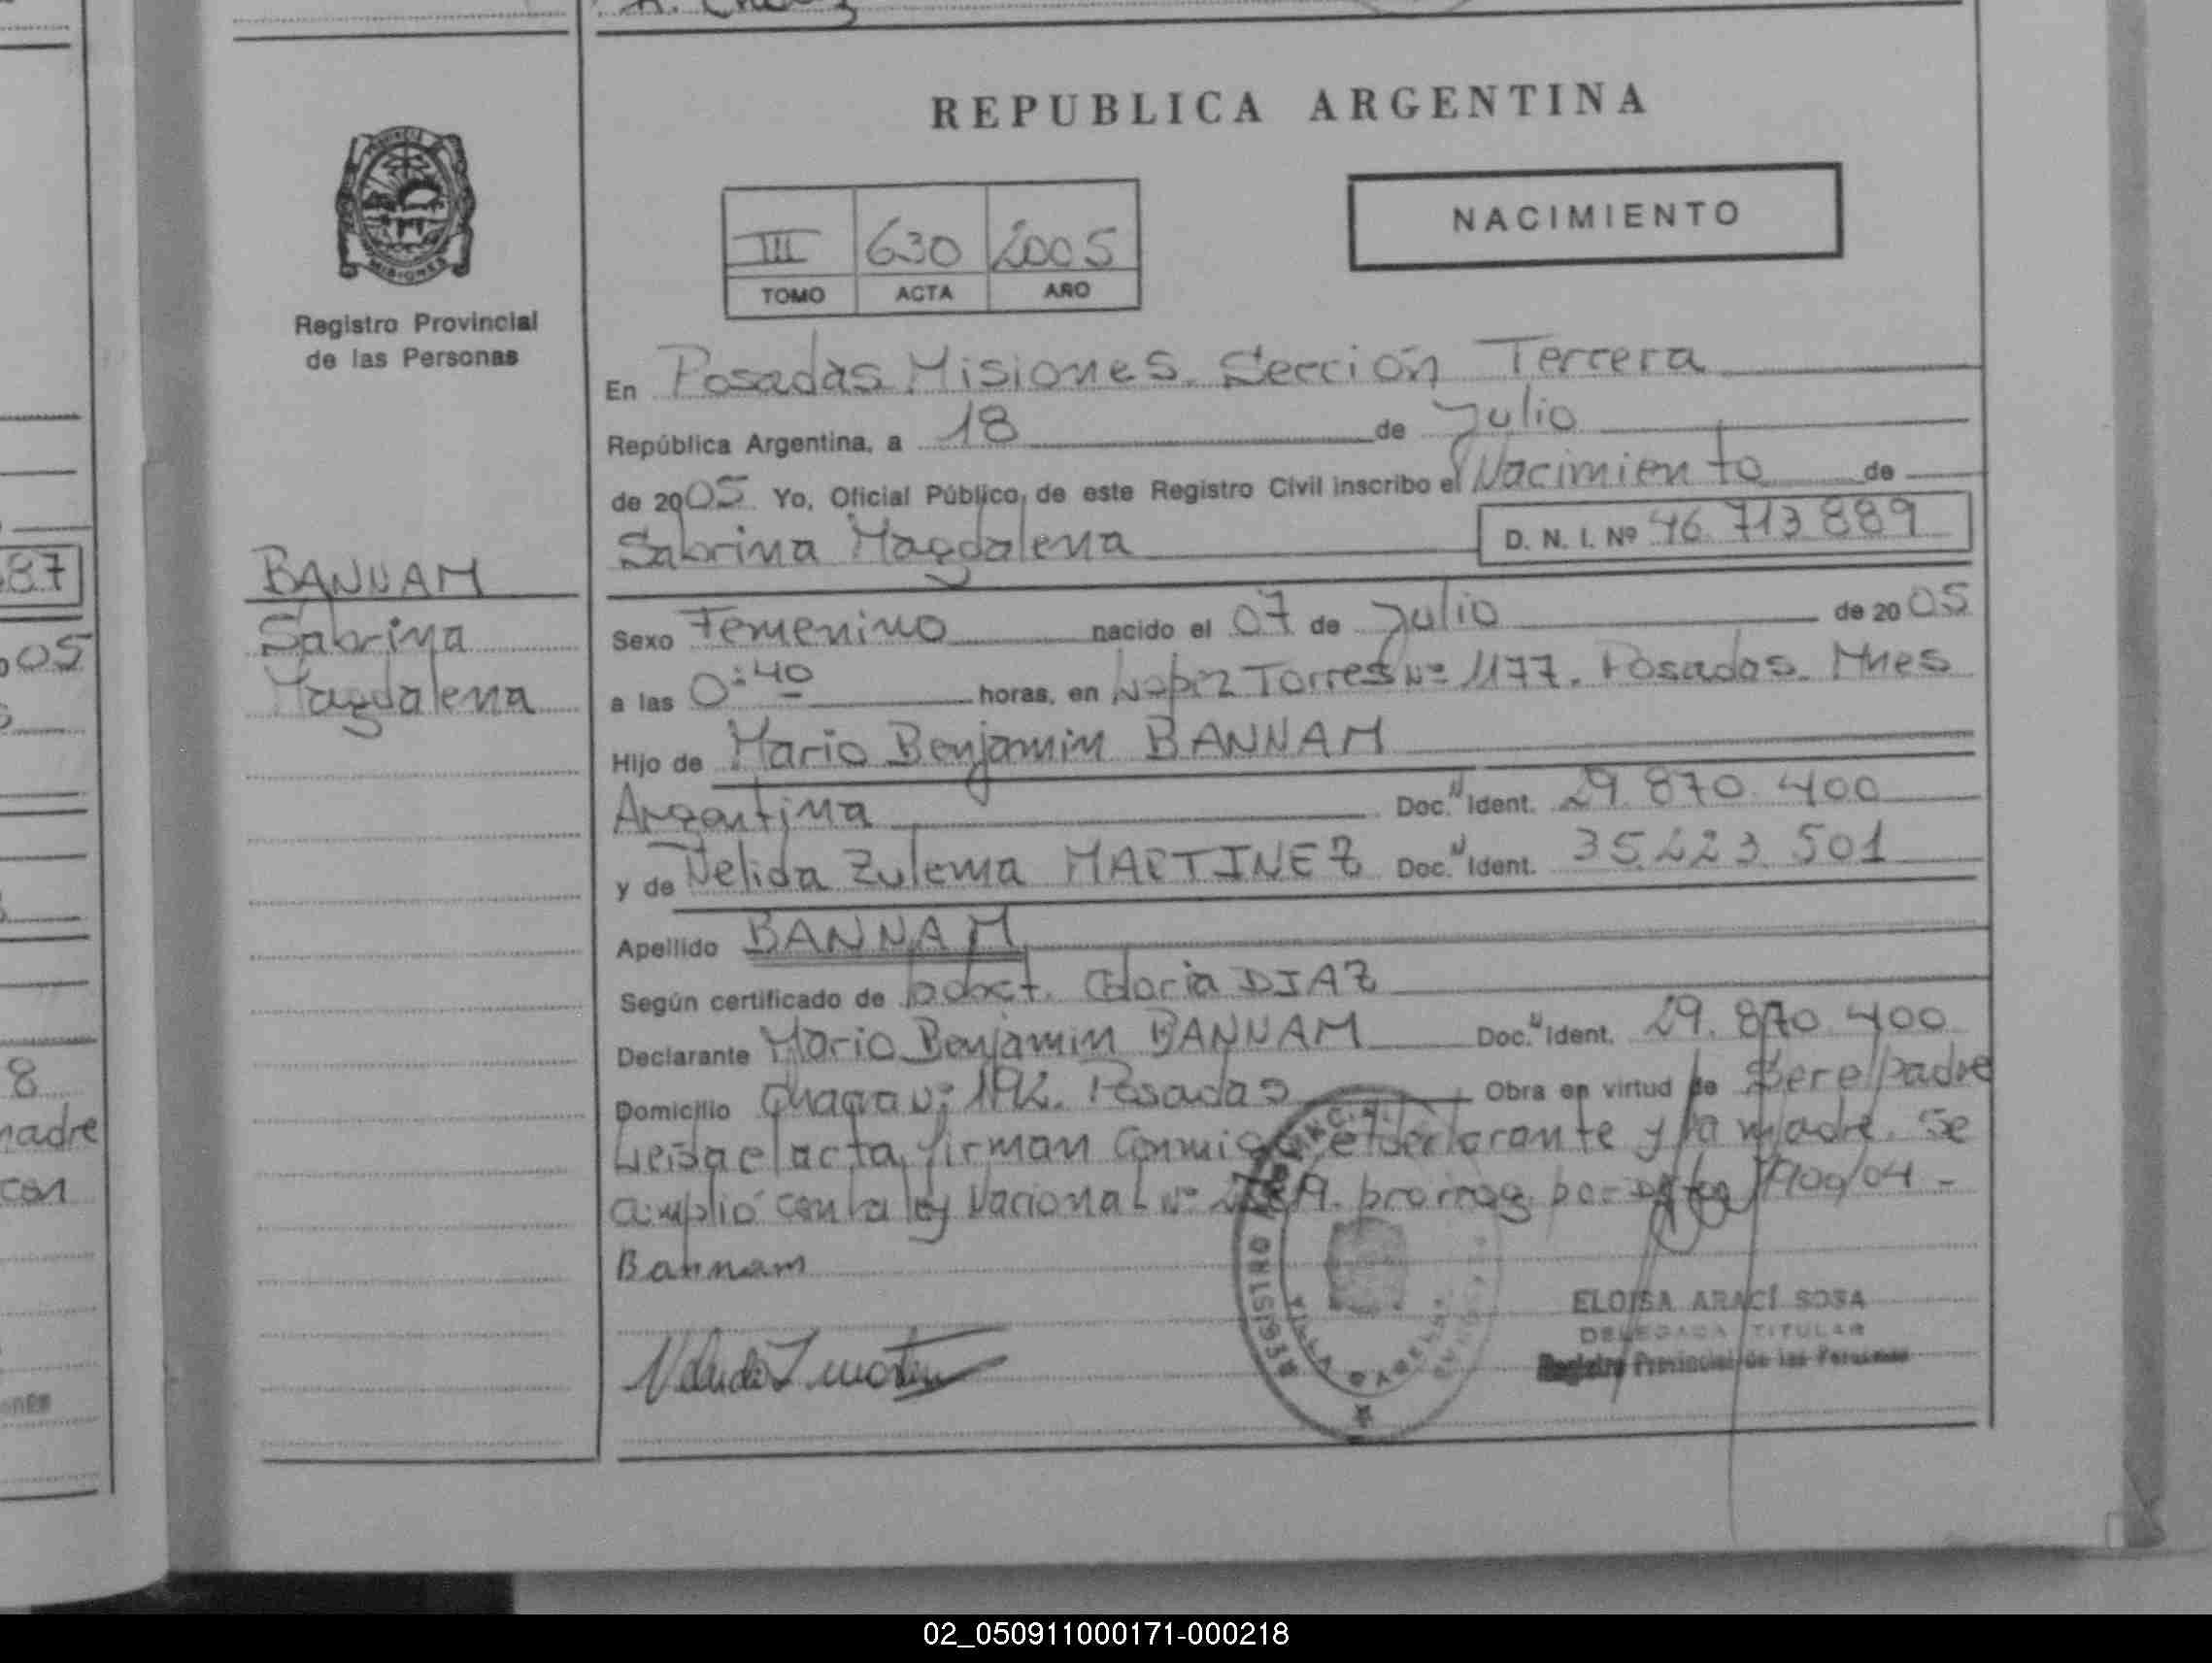 REPUBLICA ARGENTINA
PROVINCIA
MISIONES
Registro Provincial
de las Personas
III 630 2005
TOMO ACTA AÑO
NACIMIENTO
En Posadas Misiones. Sección Tercera
República Argentina, a 18 de Julio
de 2005 Yo, Oficial Público, de este Registro Civil inscribo el Nacimiento de
Sabrina Magdalena D. N. I. Nº 46.713.889
BANNAM
Sabrina
Magdalena
Sexo Femenino nacido el 07 de Julio de 2005
a las 0:40 horas, en Lopez Torres Nº 1177. Posadas. Mnes
Hijo de Mario Benjamin BANNAM
Argentina Doc. Ident. 29.870.400
y de Nelida Zulema MARTINEZ Doc. Ident. 35.223.501
Apellido BANNAM
Según certificado de obst. Gloria DIAZ
Declarante Mario Benjamin BANNAM Doc. Ident. 29.870.400
Domicilio Chacra Nº 192. Posadas Obra en virtud de Ser el padre
Leída el acta, firman Conmigo el declarante y la madre. Se
amplió con la ley Nacional Nº prorrog. por 1900/04 -
Bannam
ELOISA ARACÍ SOSA
DELEGADA TITULAR
Registro Provincial de las Personas
REGISTRO
VILLA CABELLO
87
05
8
madre
con
02_050911000171-000218